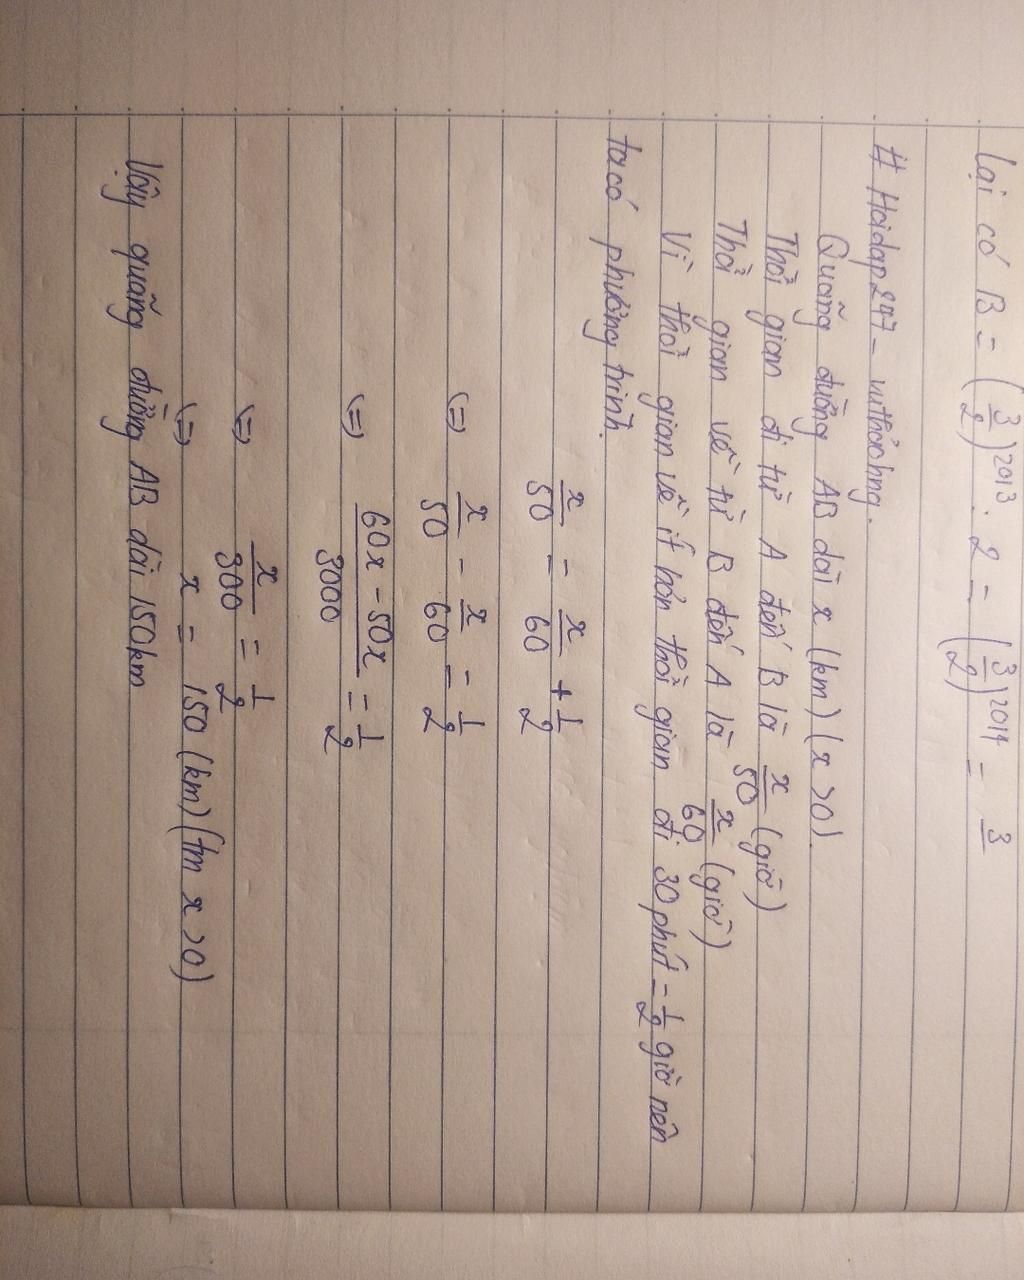 Lại có B = (3/2)^2013 : 2 = (3/2)^2014 = 3
# Hoidap247 - vuthảohng.
Quãng đường AB dài x (km) (x > 0)
Thời gian đi từ A đến B là x/50 (giờ)
Thời gian về từ B đến A là x/60 (giờ)
Vì thời gian về ít hơn thời gian đi 30 phút = 1/2 giờ nên
ta có phương trình.
x/50 = x/60 + 1/2
(=) x/50 - x/60 = 1/2
(=) (60x - 50x)/3000 = 1/2
(=) x/300 = 1/2
(=) x = 150 (km) (tm x > 0)
Vậy quãng đường AB dài 150km